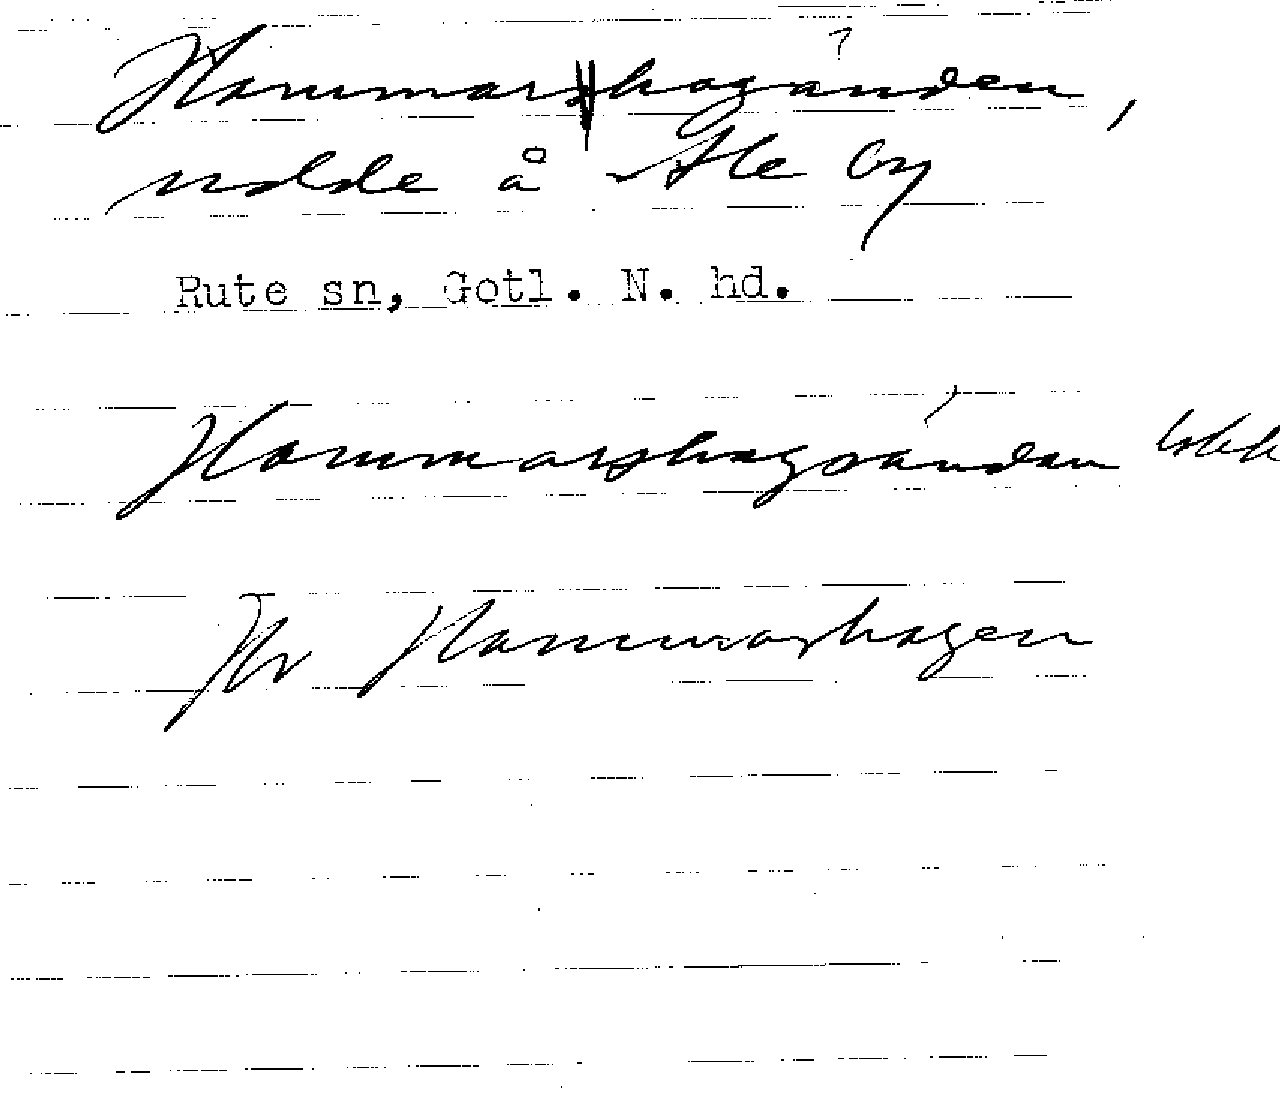 Hammarshagänden,
udde å Ale by
Rute sn, Gotl. N. hd.
Hammarshagsändan
Hr Hammarhagen